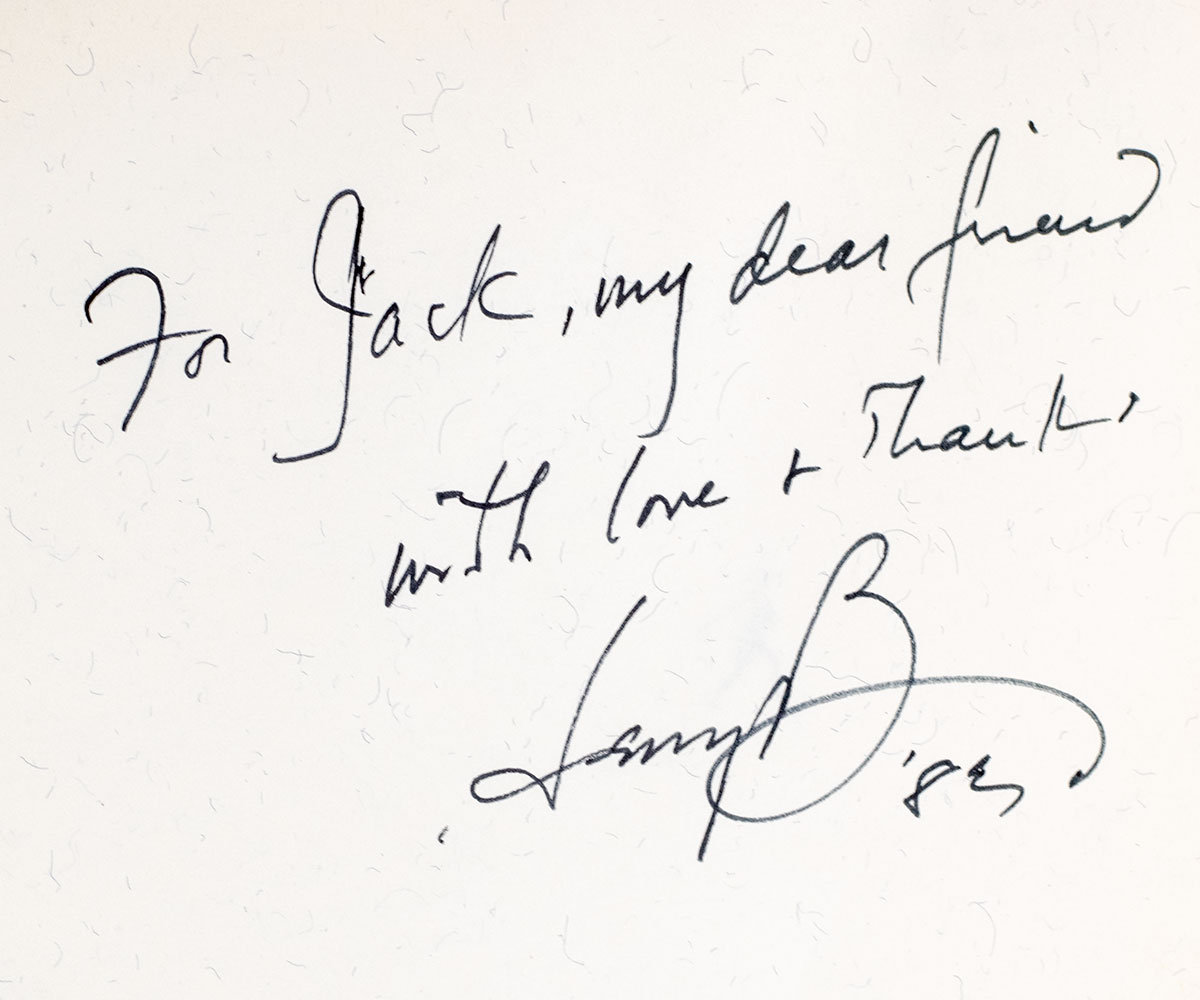 For Jack, my dear friend
with love + Thanks
Lenny B '83